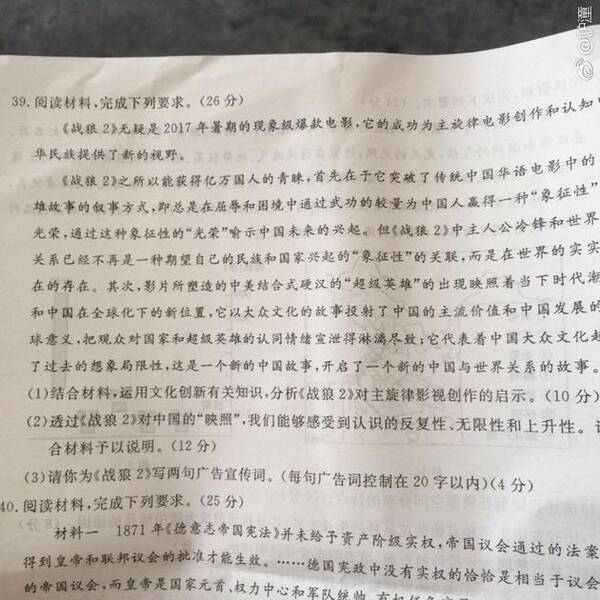 39. 阅读材料,完成下列要求。(26 分)
《战狼 2》无疑是 2017 年暑期的现象级爆款电影,它的成功为主旋律电影创作和认知中
华民族提供了新的视野。
《战狼 2》之所以能获得亿万国人的青睐,首先在于它突破了传统中国华语电影中的
雄故事的叙事方式,即总是在屈辱和困境中通过武功的较量为中国人赢得一种“象征性”
光荣,通过这种象征性的“光荣”喻示中国未来的兴起。但《战狼 2》中主人公冷锋和世界
关系已经不再是一种期望自己的民族和国家兴起的“象征性”的关联,而是在世界的实实
在的存在。其次,影片所塑造的中美结合式硬汉的“超级英雄”的出现映照着当下时代潮
和中国在全球化下的新位置,它以大众文化的故事投射了中国的主流价值和中国发展的
球意义,把观众对国家和超级英雄的认同情绪宣泄得淋漓尽致;它代表着中国大众文化超
了过去的想象局限性,这是一个新的中国故事,开启了一个新的中国与世界关系的故事。
(1)结合材料,运用文化创新有关知识,分析《战狼 2》对主旋律影视创作的启示。(10 分)
(2)透过《战狼 2》对中国的“映照”,我们能够感受到认识的反复性、无限性和上升性。
合材料予以说明。(12 分)
(3)请你为《战狼 2》写两句广告宣传词。(每句广告词控制在 20 字以内)(4 分)
40. 阅读材料,完成下列要求。(25 分)
材料一 1871 年《德意志帝国宪法》并未给予资产阶级实权,帝国议会通过的法案
得到皇帝和联邦议会的批准才能生效。……德国宪政中没有实权的恰恰是相当于议会
的帝国议会,而皇帝是国家元首、权力中心和军队统帅